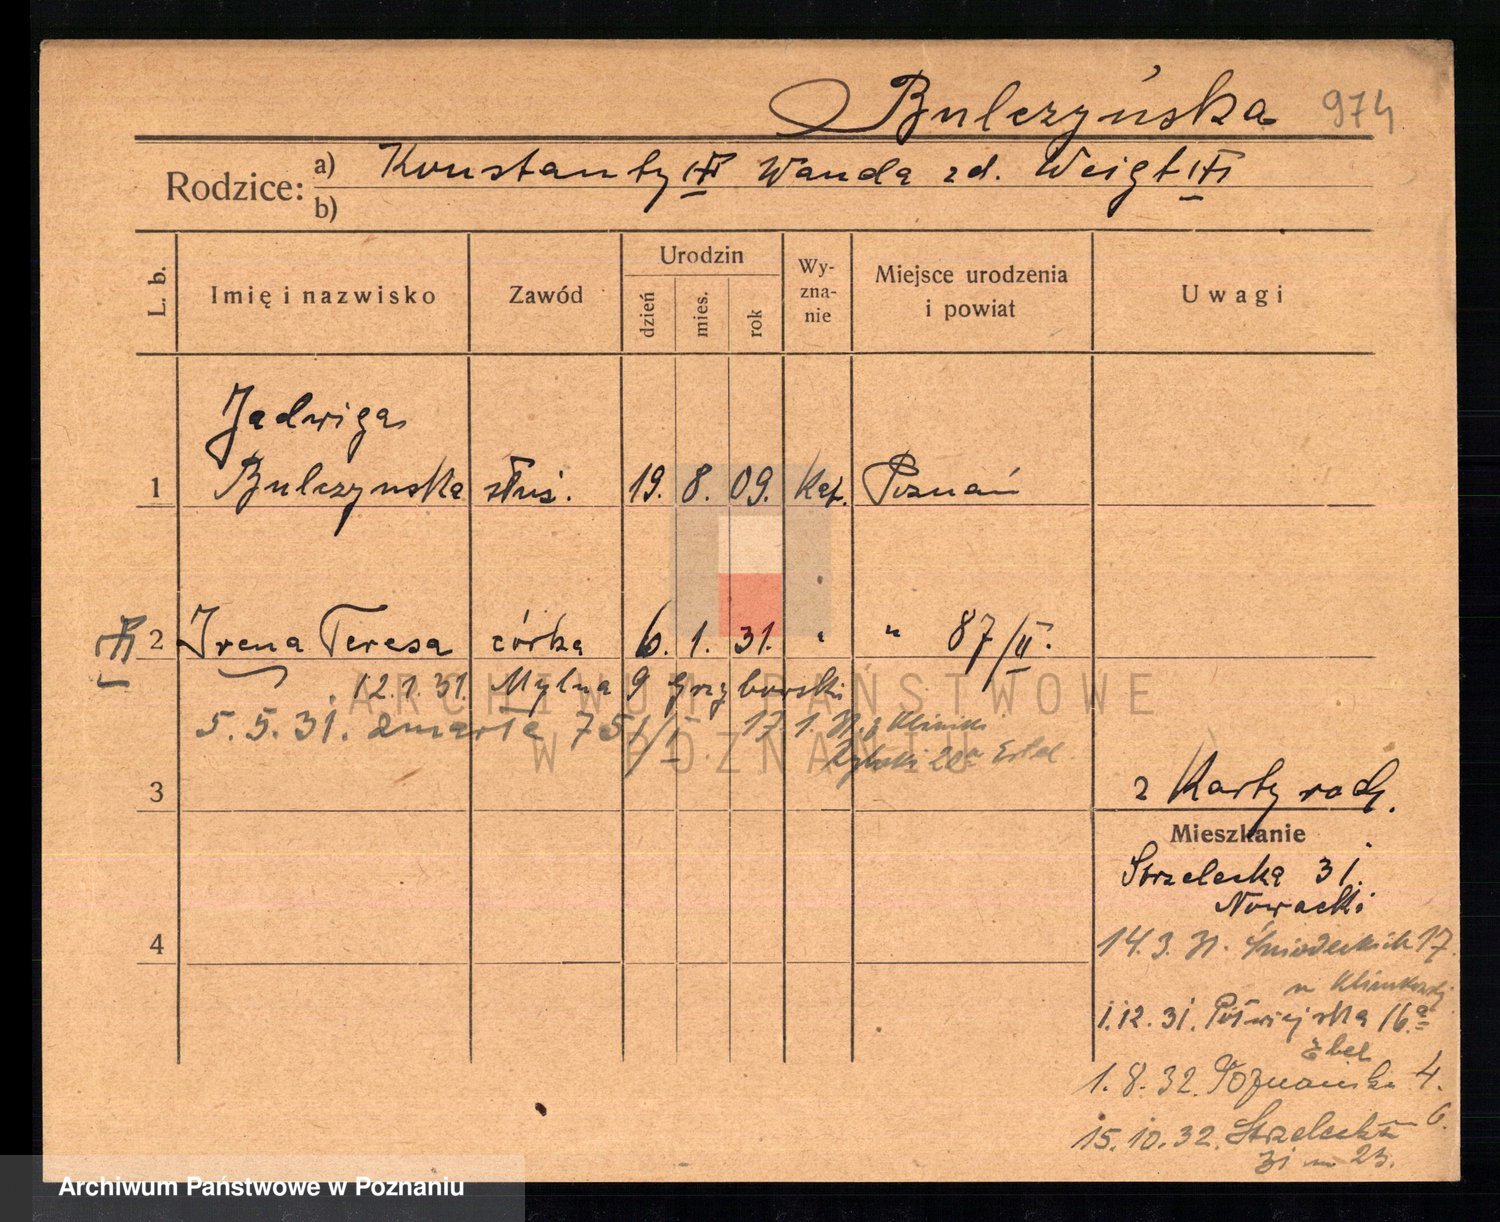 Bulczyńska 974
Rodzice: a) Konstanty Wanda zd. Weigt
b)
L. b. Imię i nazwisko Zawód Urodzin dzień mies. rok Wy-zna-nie Miejsce urodzenia i powiat Uwagi
Jadwiga
1 Bulczynska służ. 19. 8. 09. Kat. Poznań
2 Irena Teresa córka 6. 1. 31. " " 87/II.
12.1.31. Mylna 9 Grzyborski
5.5.31. zmarła 751/I 17.1.31. z Kliniki
3
z Karty rodz.
Mieszkanie
Strzelecka 31.
Nowacki
4
14.3.31. Śniadeckich 17.
1.12.31. Półwiejska 16a
1.8.32. Poznańska 4.
15.10.32. Strzelecka
31 m 23.
ARCHIWUM PAŃSTWOWE
W POZNANIU
Archiwum Państwowe w Poznaniu